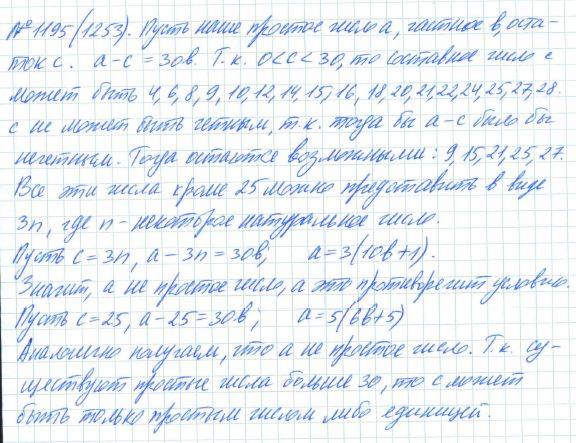 № 1195(1253). Пусть наше простое число a, частное в, оста-
ток с. a-с = 30в. Т.к. 0<с<30, то составное число с
может быть 4, 6, 8, 9, 10, 12, 14, 15, 16, 18, 20, 21, 22, 24, 25, 27, 28.
с не может быть четным, т.к. тогда бы a-с было бы
нечетным. Тогда остаются возможными: 9, 15, 21, 25, 27.
Все эти числа кроме 25 можно представить в виде
3n, где n - некоторое натуральное число.
Пусть с=3n, a-3n=30в; a=3(10в+1).
Значит, a не простое число, а это противоречит условию.
Пусть с=25, a-25=30в; a=5(6в+5)
Аналогично получаем, что a не простое число. Т.к. су-
ществуют простые числа больше 30, то с может
быть только простым числом либо единицей.